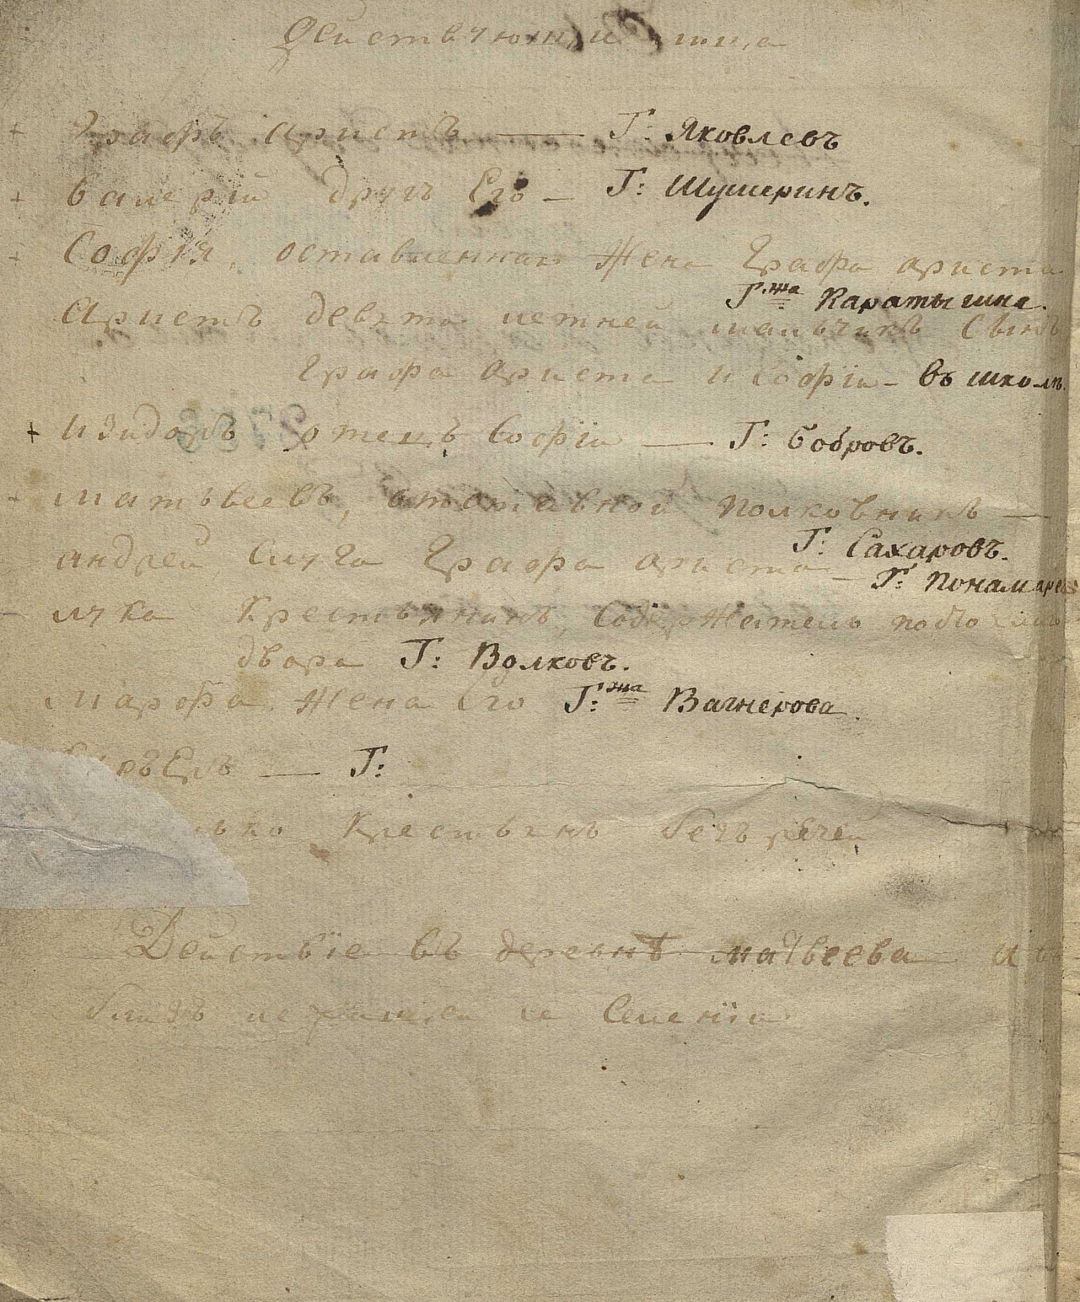 Действующии лица
Графъ Аристъ — Г: Яковлевъ
Валерій другъ Его — Г: Шушеринъ.
Софія, оставленная Жена Графа Ариста
Г:жа Каратыгина.
Аристъ девяти летней мальчикъ Сынъ
Графа Ариста и Софіи — въ школѣ.
Изидоръ отецъ Софіи — Г: Бобровъ.
Матвѣевъ, отставной Полковникъ —
Г: Сахаровъ.
Андрей Слуга Графа Ариста — Г: Понамарев
Лука Крестьянинъ, Содержатель
двора Г: Волковъ.
Марфа Жена Его Г:жа Вагнерова.
— Г:
Крестьянъ безъ речей
Действіе въ деревнѣ Матвеева и
близъ Селенія